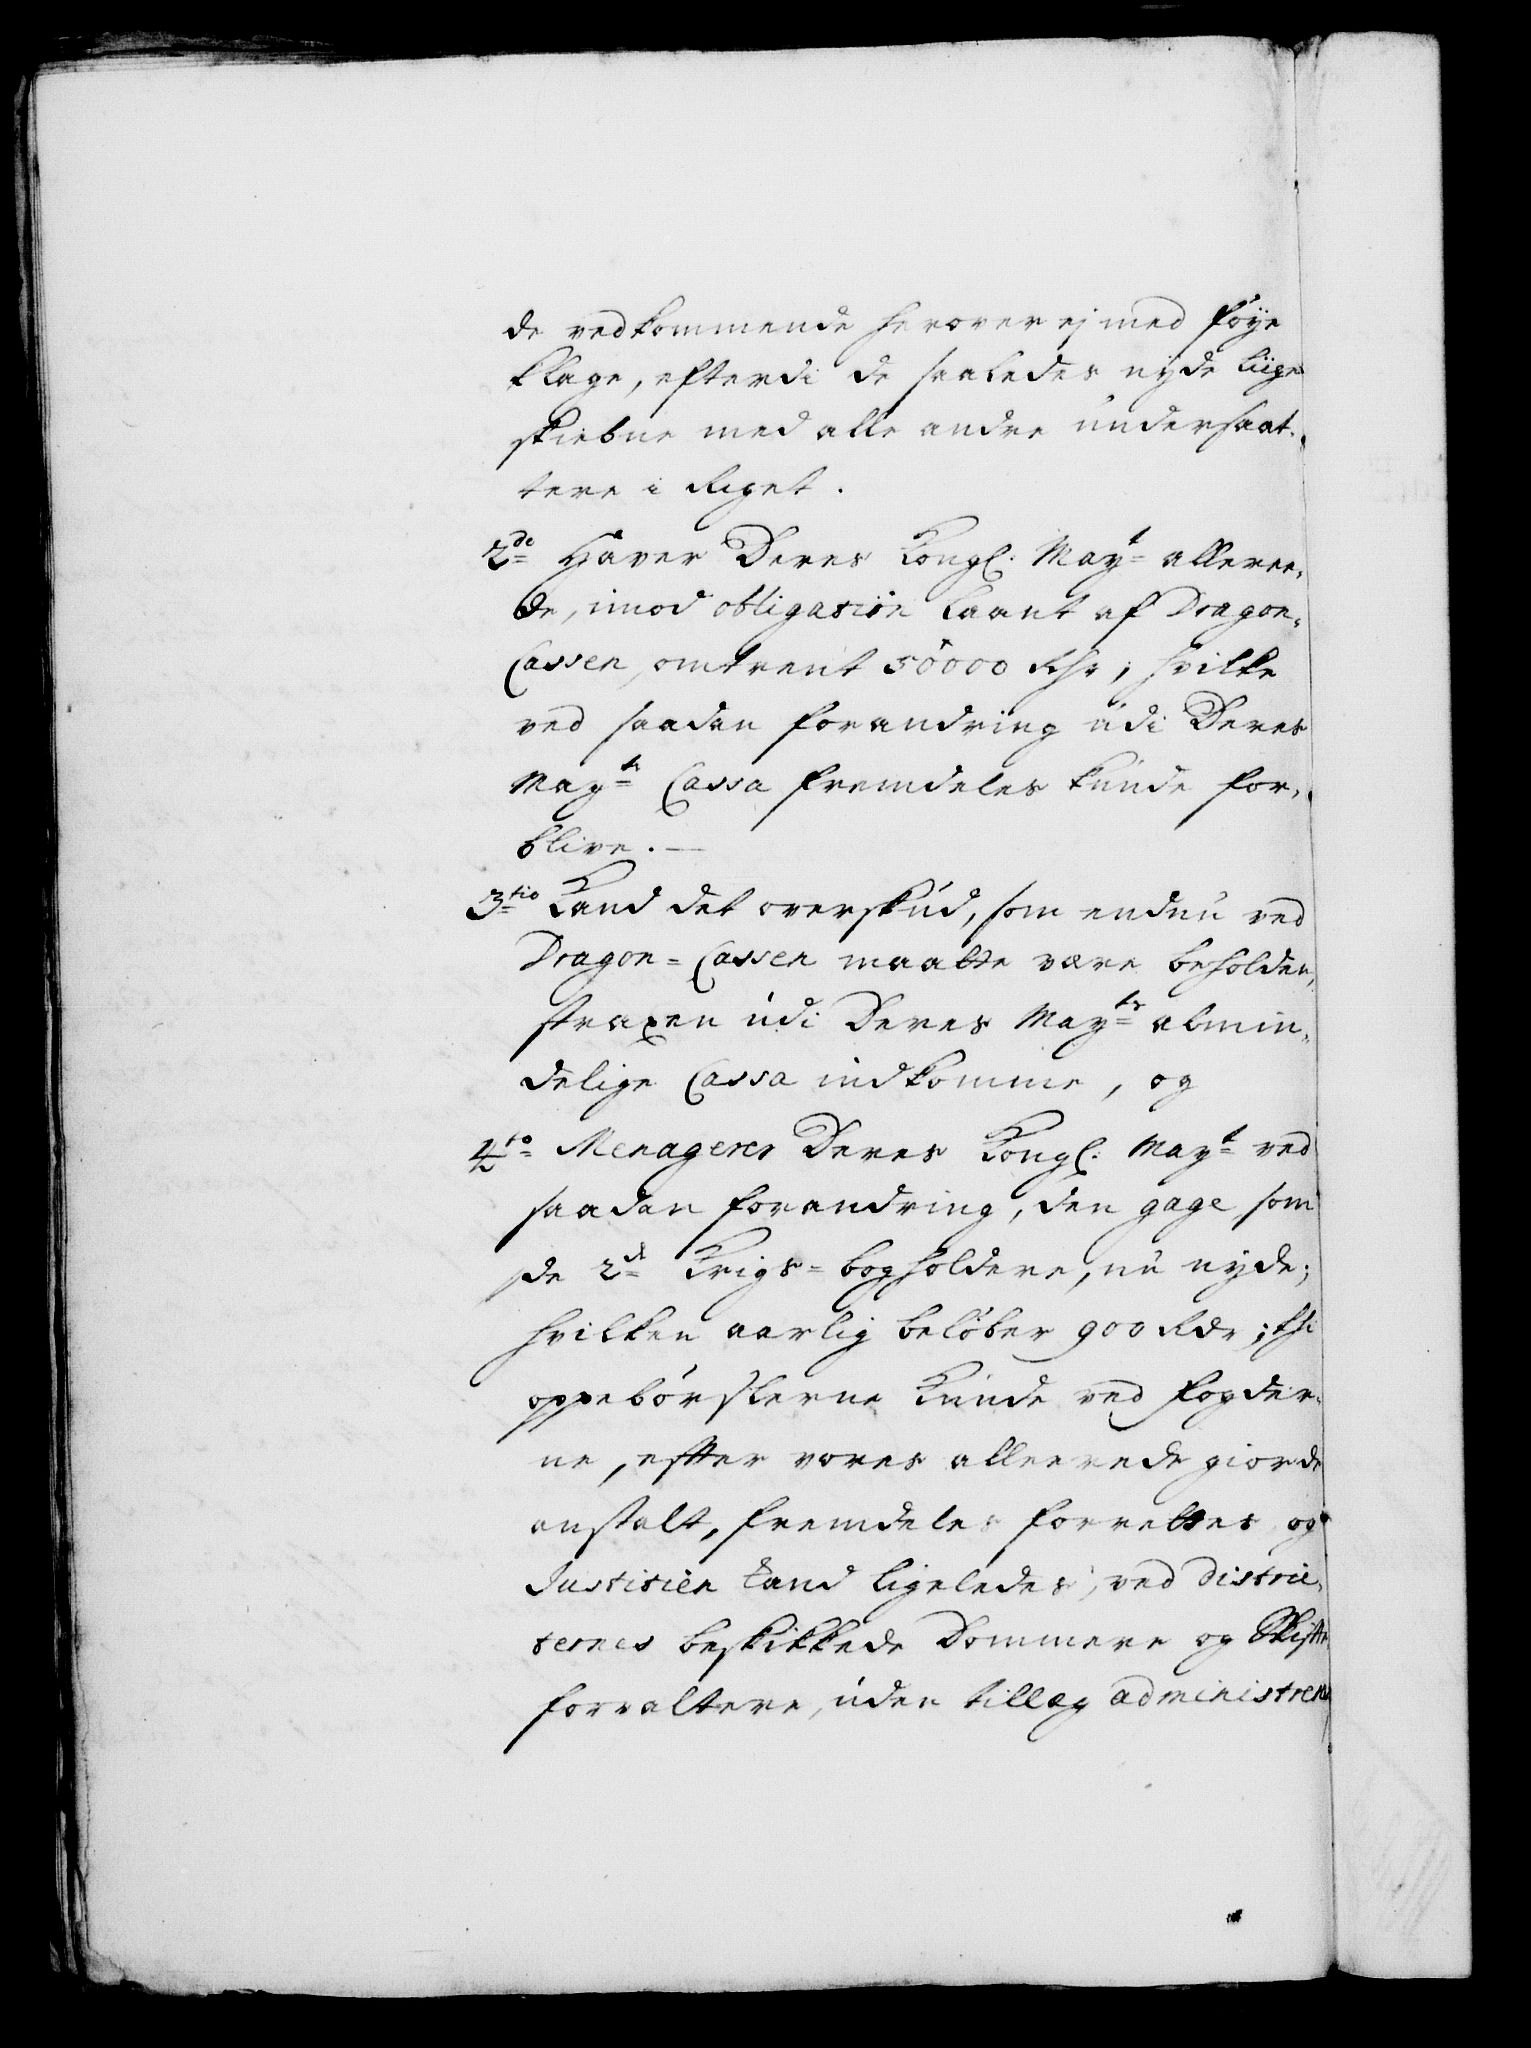 de vedkommende herover ej med föye
klage, efterdi de saaledes nyde liige
skiebne med alle andre undersaat-
tere i Riget.
2de Haver Deres Kongl. Mayt alleree-
de, imod obligation laant af Dragon-
Cassen omtrent 50000 Rdr, hvilke
ved saadan forandring udi Deres
Mayts Cassa fremdeles kunde for-
blive. —
3tio Kand det overskud, som endnu ved
Dragon-Cassen maatte være beholden,
straxen udi Deres Mayts almin-
delige Cassa indkomme, og
4to Menagerer Deres Kongl. Mayt ved
saadan forandring, den gage som
de 2de Krigs-bogholdere, nu nyde;
hvilken aarlig belöber 900 Rdr; thi
oppebörslerne kunde ved fogder-
ne, efter vores alleerede giorde
anstalt, fremdeles forrettes og
Justitien kand ligeledes, ved distric-
ternes beskikkede Dommere og Skifte
forvaltere, uden tillæg administreres